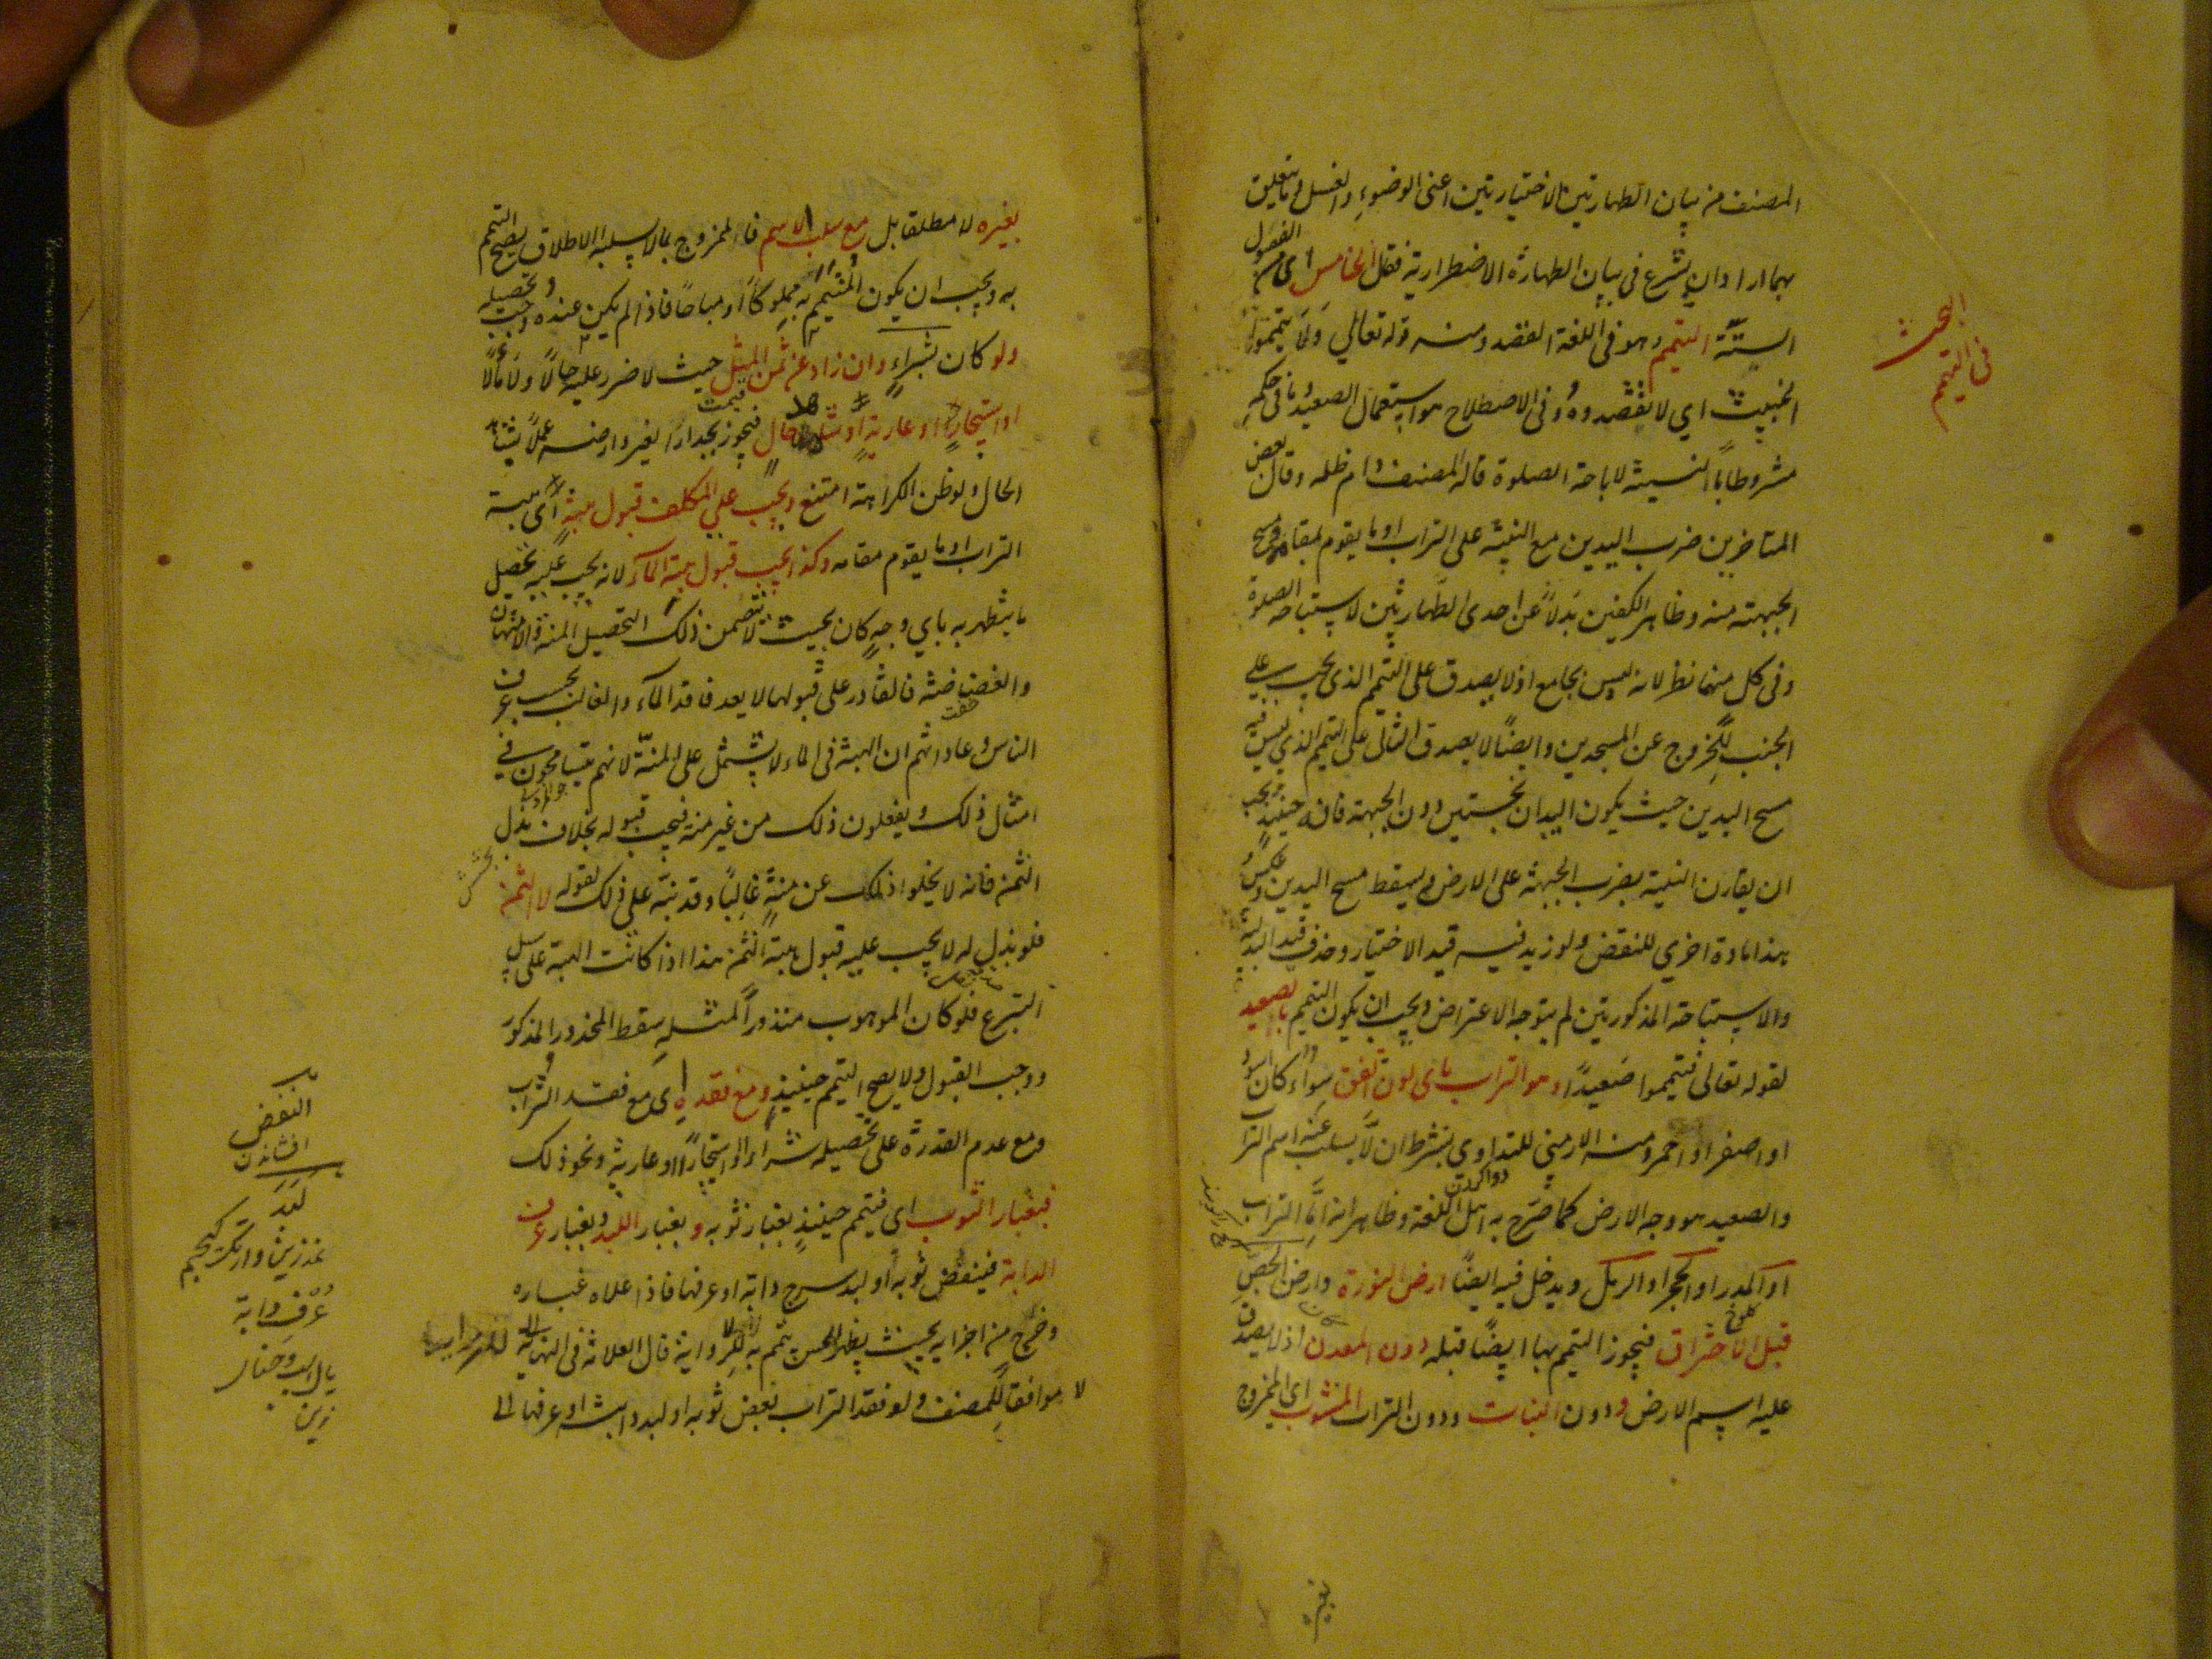 المصنف من بيان الطهارتين الاختياريتين اعنى الوضوء والغسل وما يتعلق
بهما اراد ان يشرع فى بيان الطهارة الاضطرارية فقال الخامس اى من الفصول
الستة التيمم وهو فى اللغة القصد ومنه قوله تعالي ولا تيمموا
الخبيث اي لا تقصدوه وفى الاصطلاح هو استعمال الصعيد وما فى حكمه
مشروطا بالنية لاباحة الصلوة قاله المصنف دام ظله وقال بعض
المتاخرين ضرب اليدين مع النية على التراب او ما يقوم مقامه ومسح
الجبهة منه وظاهر الكفين بدلاً عن احدى الطهارتين لاستباحة الصلوة
وفى كل منهما نظر لانه ليس بجامع اذ لا يصدق على التيمم الذى يجب علي
الجنب للخروج عن المسجدين وايضًا لا يصدق الثانى على التيمم الذي ليس فيه
مسح اليدين حيث يكون اليدان نجستين دون الجبهة فانه حينئذٍ يجب
ان يقارن النية بضرب الجبهة على الارض ويسقط مسح اليدين
هذا مادة اخري للنقض ولو زيد فيه قيد الاختيار وحذف قيد البدلية
والاستباحة المذكورتين لم يتوجه الاعتراض ويجب ان يكون التيمم بالصعيد
لقوله تعالى فتيمموا صعيدًا وهو التراب باى لون اتفق سواء كان اسود
او اصفر او احمر ومنه الارمنى للتداوى بشرط ان لا يسلب عنه اسم التراب
والصعيد هو وجه الارض كما صرح به اهل اللغة وظاهر انه اما التراب
او المدر او الحجر او الرمل ويدخل فيه ايضًا ارض النورة وارض الجص
قبل الاحتراق فيجوز التيمم بها ايضًا قبله دون المعدن اذ لا يصدق
عليه اسم الارض ودون النبات ودون التراب المشوب اى الممزوج
البحث
فى التيمم
دوا كردن
كلوخ
بغيره
بغيره لا مطلقا بل مع سلب الاسم فالممزوج بما لا يسلبه الاطلاق يصح التيمم
به ويجب ان يكون المتيمم به مملوكًا او مباحًا فاذا لم يكن عنده وجب تحصيله
ولو كان بشراءٍ وان زاد عن ثمن المثل حيث لا ضرر عليه حالاً ولا مآلاً
او استيجارٍ او عاريةٍ او شاهد حال فيجوز بجدار الغير وارضه عملاً بشاهد
الحال ولو ظن الكراهة امتنع ويجب علي المكلف قبول هبته اى هبة
التراب او ما يقوم مقامه وكذا يجب قبول هبة الماء لانه يجب عليه تحصيل
ما يتطهر به باي وجهٍ كان بحيث لا يتضمن ذلك التحصيل المنة والامتهان
والغضاضة فالقادر على قبولها لا يعد فاقد الماء والغالب بحسب عرف
الناس وعاداتهم ان الهبة فى الماء لا يشتمل على المنة لانهم يتسامحون في
امثال ذلك ويفعلون ذلك من غير منة فيجب قبوله بخلاف بذل
الثمن فانه لا يخلو اذلك عن منةٍ غالبًا وقد نبه على ذلك بقوله لا الثمن
فلو بذل له لا يجب عليه قبول هبة الثمن هذا اذا كانت الهبة على سبيل
التبرع فلو كان الموهوب منذوراً لمثله سقط المحذور المذكور
ووجب القبول ولا يصح التيمم حينئذٍ ومع فقده اى مع فقد التراب
ومع عدم القدرة على تحصيله شراء او استيجارًا او عارية ونحو ذلك
فبغبار الثوب اى فيتمم حينئذٍ بغبار ثوبه وبغبار اللبد وبغبار عرف
الدابة فينفض ثوبه او لبد سرج دابة او عرفها فاذا علاه غباره
وخرج من اجزايه بحيث يظهر للحس يتمم به للرواية قال العلامة فى النهاية
لا موافقا للمصنف ولو فقد التراب نفض ثوبه او لبد دابته او عرفها الى
قيمت
النفض
افشاندن
لبد
نمد زين
عرف دابة
يال اسب